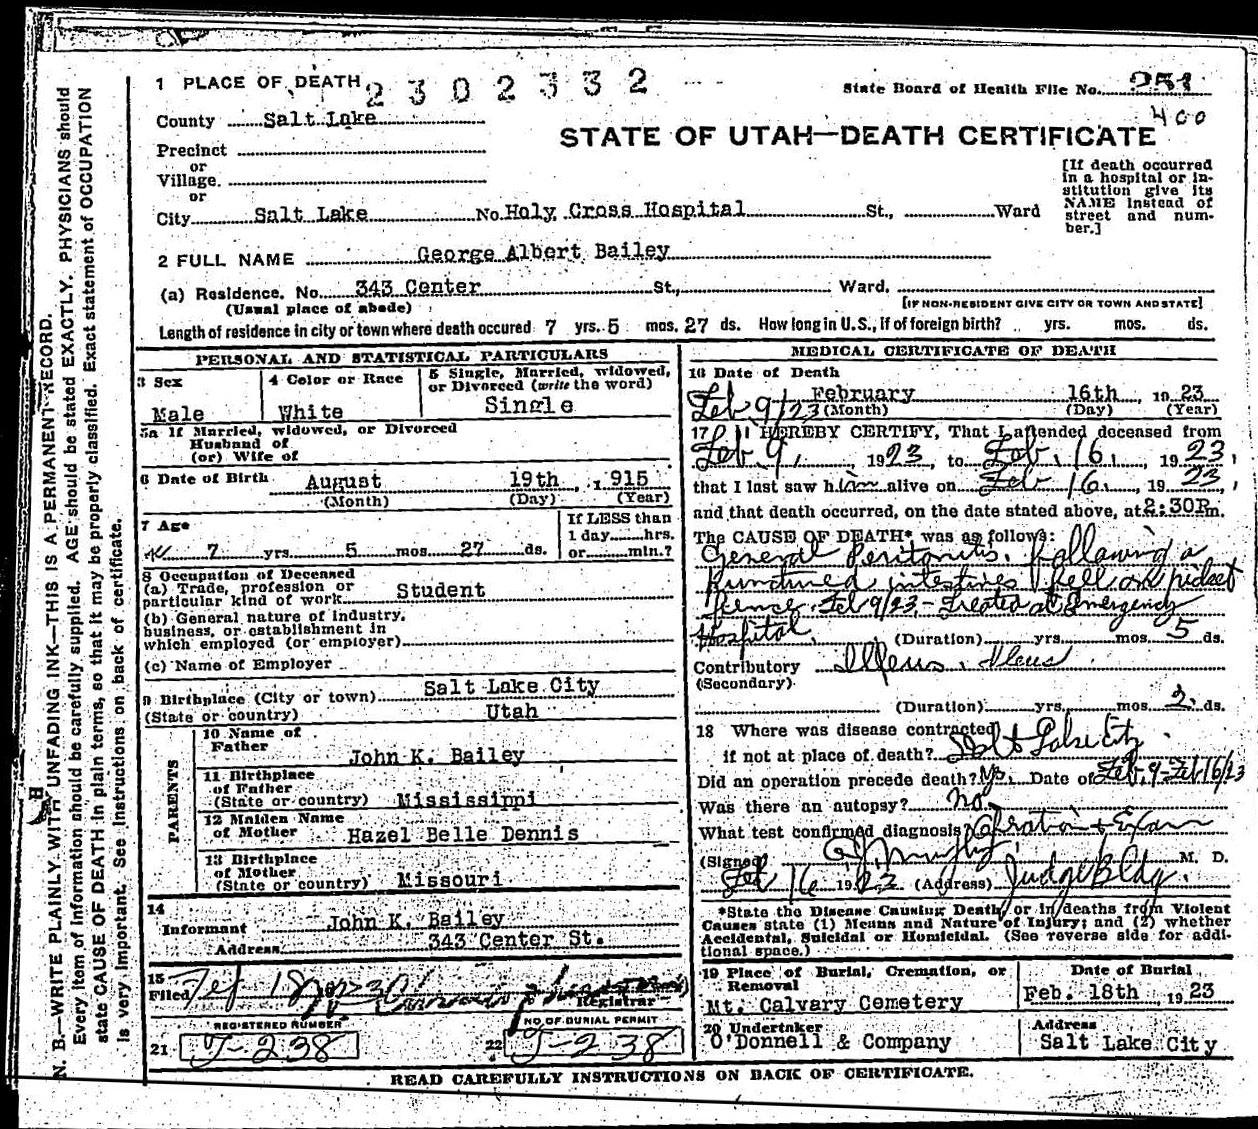 1 PLACE OF DEATH 2302332
State Board of Health File No. 251
400
County Salt Lake
STATE OF UTAH—DEATH CERTIFICATE
Precinct
or
Village.
or
City Salt Lake No. Holy Cross Hospital St., Ward
[If death occurred in a hospital or institution give its NAME instead of street and number.]
2 FULL NAME George Albert Bailey
(a) Residence. No. 343 Center St., Ward.
(Usual place of abode) [IF NON-RESIDENT GIVE CITY OR TOWN AND STATE]
Length of residence in city or town where death occured 7 yrs. 5 mos. 27 ds. How long in U.S., if of foreign birth? yrs. mos. ds.
PERSONAL AND STATISTICAL PARTICULARS
3 Sex
Male
4 Color or Race
White
5 Single, Married, widowed, or Divorced (write the word)
Single
5a If Married, widowed, or Divorced
Husband of
(or) Wife of
6 Date of Birth August 19th, 1915
(Month) (Day) (Year)
7 Age
7 yrs. 5 mos. 27 ds.
If LESS than
1 day hrs.
or min.?
8 Occupation of Deceased
(a) Trade, profession or
particular kind of work Student
(b) General nature of industry,
business, or establishment in
which employed (or employer)
(c) Name of Employer
9 Birthplace (City or town) Salt Lake City
(State or country) Utah
PARENTS
10 Name of
Father John K. Bailey
11 Birthplace
of Father
(State or country) Mississippi
12 Maiden Name
of Mother Hazel Belle Dennis
13 Birthplace
of Mother
(State or country) Missouri
14
Informant John K. Bailey
Address 343 Center St.
15
Filed Registrar
REGISTERED NUMBER
21 J-238
NO OF BURIAL PERMIT
22 J-238
MEDICAL CERTIFICATE OF DEATH
16 Date of Death
February 16th, 1923
Feb 9/23 (Month) (Day) (Year)
17 I HEREBY CERTIFY, That I attended deceased from
Feb. 9, 1923, to Feb. 16, 1923,
that I last saw him alive on Feb 16, 1923,
and that death occurred, on the date stated above, at 2:30P.m.
The CAUSE OF DEATH* was as follows:
General Peritonitis. Following a
Punctured intestines fell on picket
fence Feb 9/23 - Treated at Emergency
Hospital. (Duration) yrs. mos. 5 ds.
Contributory Illeus. Ileus
(Secondary)
(Duration) yrs. mos. 2 ds.
18 Where was disease contracted
if not at place of death? Salt Lake City.
Did an operation precede death? Yes. Date of Feb. 9 - Feb 16/23
Was there an autopsy? no.
What test confirmed diagnosis? Operation + Exam
(Signed) M. D.
Feb 16 1923 (Address) Judge Bldg.
*State the Disease Causing Death, or in deaths from Violent
Causes state (1) Means and Nature of Injury; and (2) whether
Accidental, Suicidal or Homicidal. (See reverse side for addi-
tional space.)
19 Place of Burial, Cremation, or
Removal
Mt. Calvary Cemetery
Date of Burial
Feb. 18th, 1923
20 Undertaker
O'Donnell & Company
Address
Salt Lake City
READ CAREFULLY INSTRUCTIONS ON BACK OF CERTIFICATE.
N. B.—WRITE PLAINLY WITH UNFADING INK—THIS IS A PERMANENT RECORD.
Every item of information should be carefully supplied. AGE should be stated EXACTLY. PHYSICIANS should
state CAUSE OF DEATH in plain terms, so that it may be properly classified. Exact statement of OCCUPATION
is very important. See instructions on back of certificate.